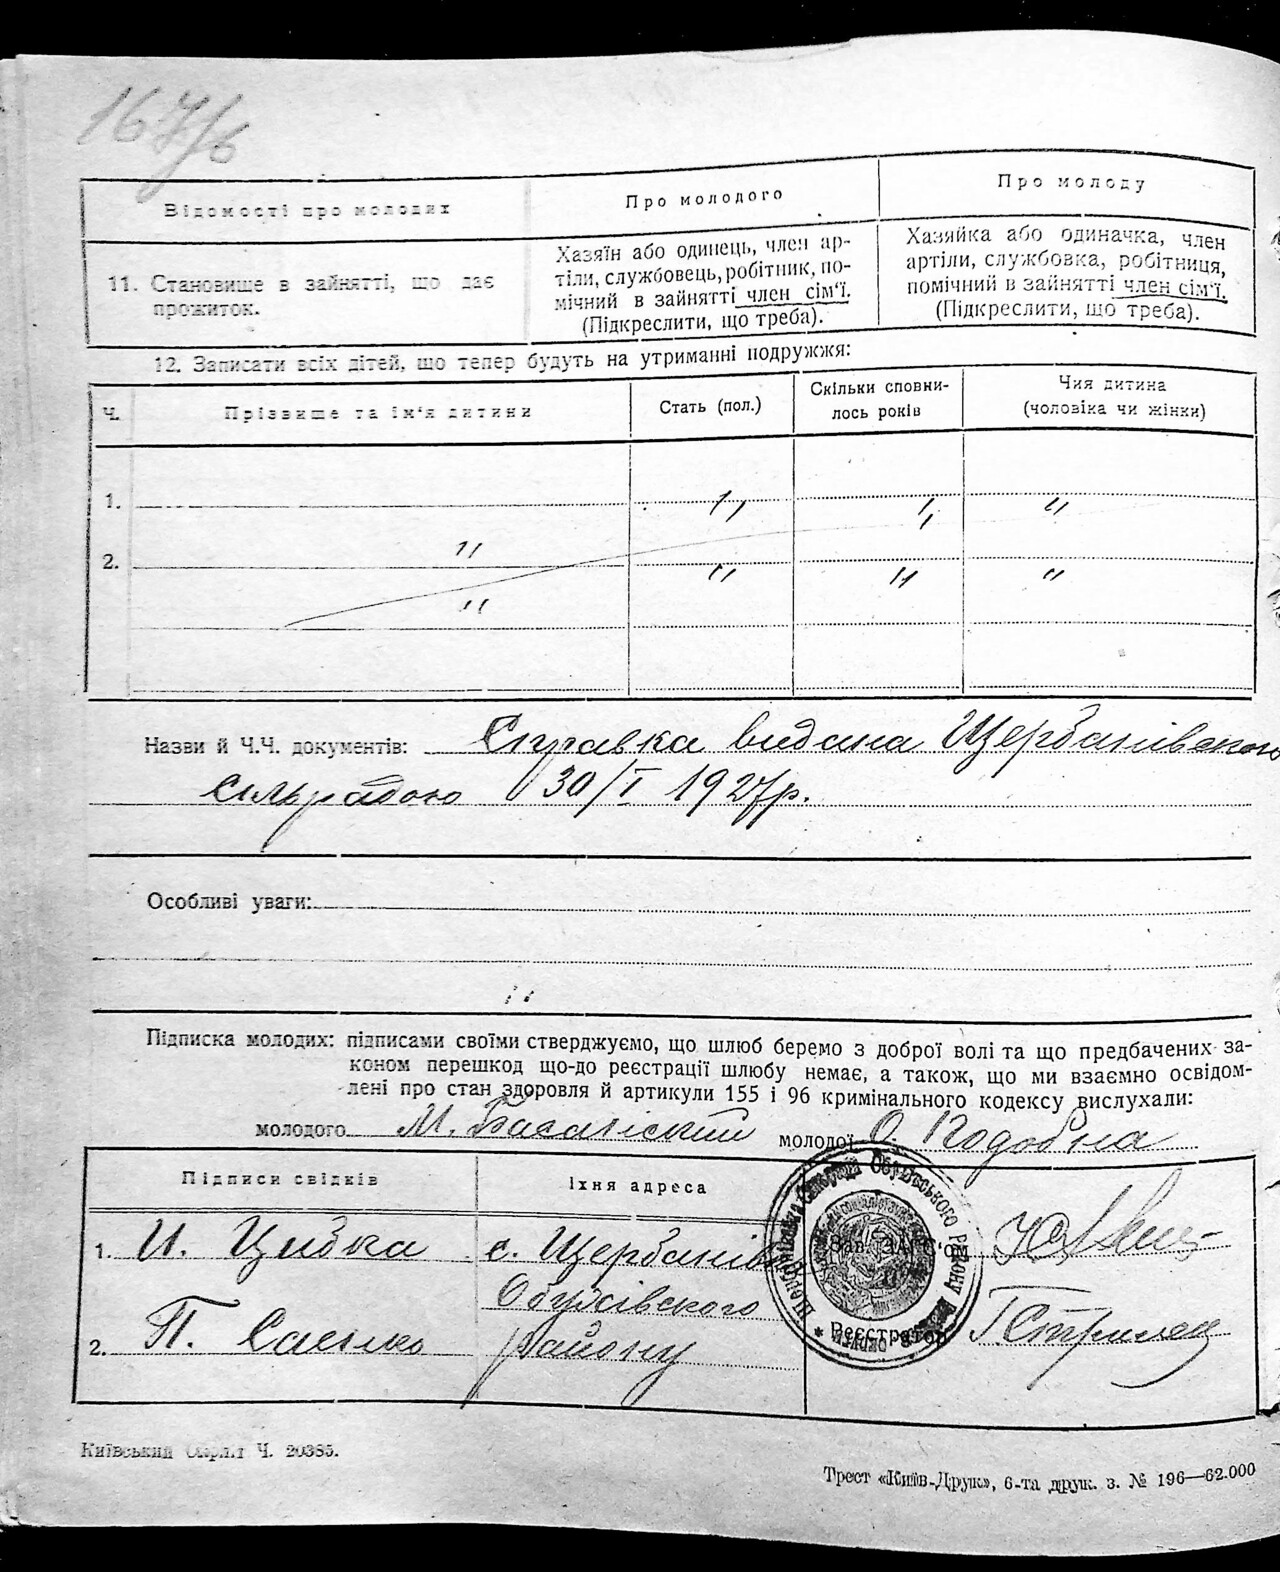 167/6
Відомості про молодих
Про молодого
Про молоду
11. Становище в зайнятті, що дає
прожиток.
Хазяїн або одинець, член ар-
тіли, службовець, робітник, по-
мічний в зайнятті член сім'ї.
(Підкреслити, що треба).
Хазяйка або одиначка, член
артіли, службовка, робітниця,
помічний в зайнятті член сім'ї.
(Підкреслити, що треба).
12. Записати всіх дітей, що тепер будуть на утриманні подружжя:
Ч.
Прізвище та ім'я дитини
Стать (пол.)
Скільки сповни-
лось років
Чия дитина
(чоловіка чи жінки)
1.
" " "
"
2.
" " "
"
Назви й Ч.Ч. документів: Справка видана Щербанівского
Сільрадою 30/I 1927р.
Особливі уваги:
"
Підписка молодих: підписами своїми стверджуємо, що шлюб беремо з доброї волі та що предбачених за-
коном перешкод що-до реєстрації шлюбу немає, а також, що ми взаємно освідом-
лені про стан здоровля й артикули 155 і 96 кримінального кодексу вислухали:
молодого М. молодої О. Подобна
Підписи свідків
Їхня адреса
1. И. Цибка с. Щербанівка
Обухівского
2. П. Саенко району
Зав. ЗАГС'ом
Реєстратор Стрилец
Обухівського Району
Київський Окрліт Ч. 20385.
Трест «Київ-Друк», 6-та друк. з. № 196—62.000